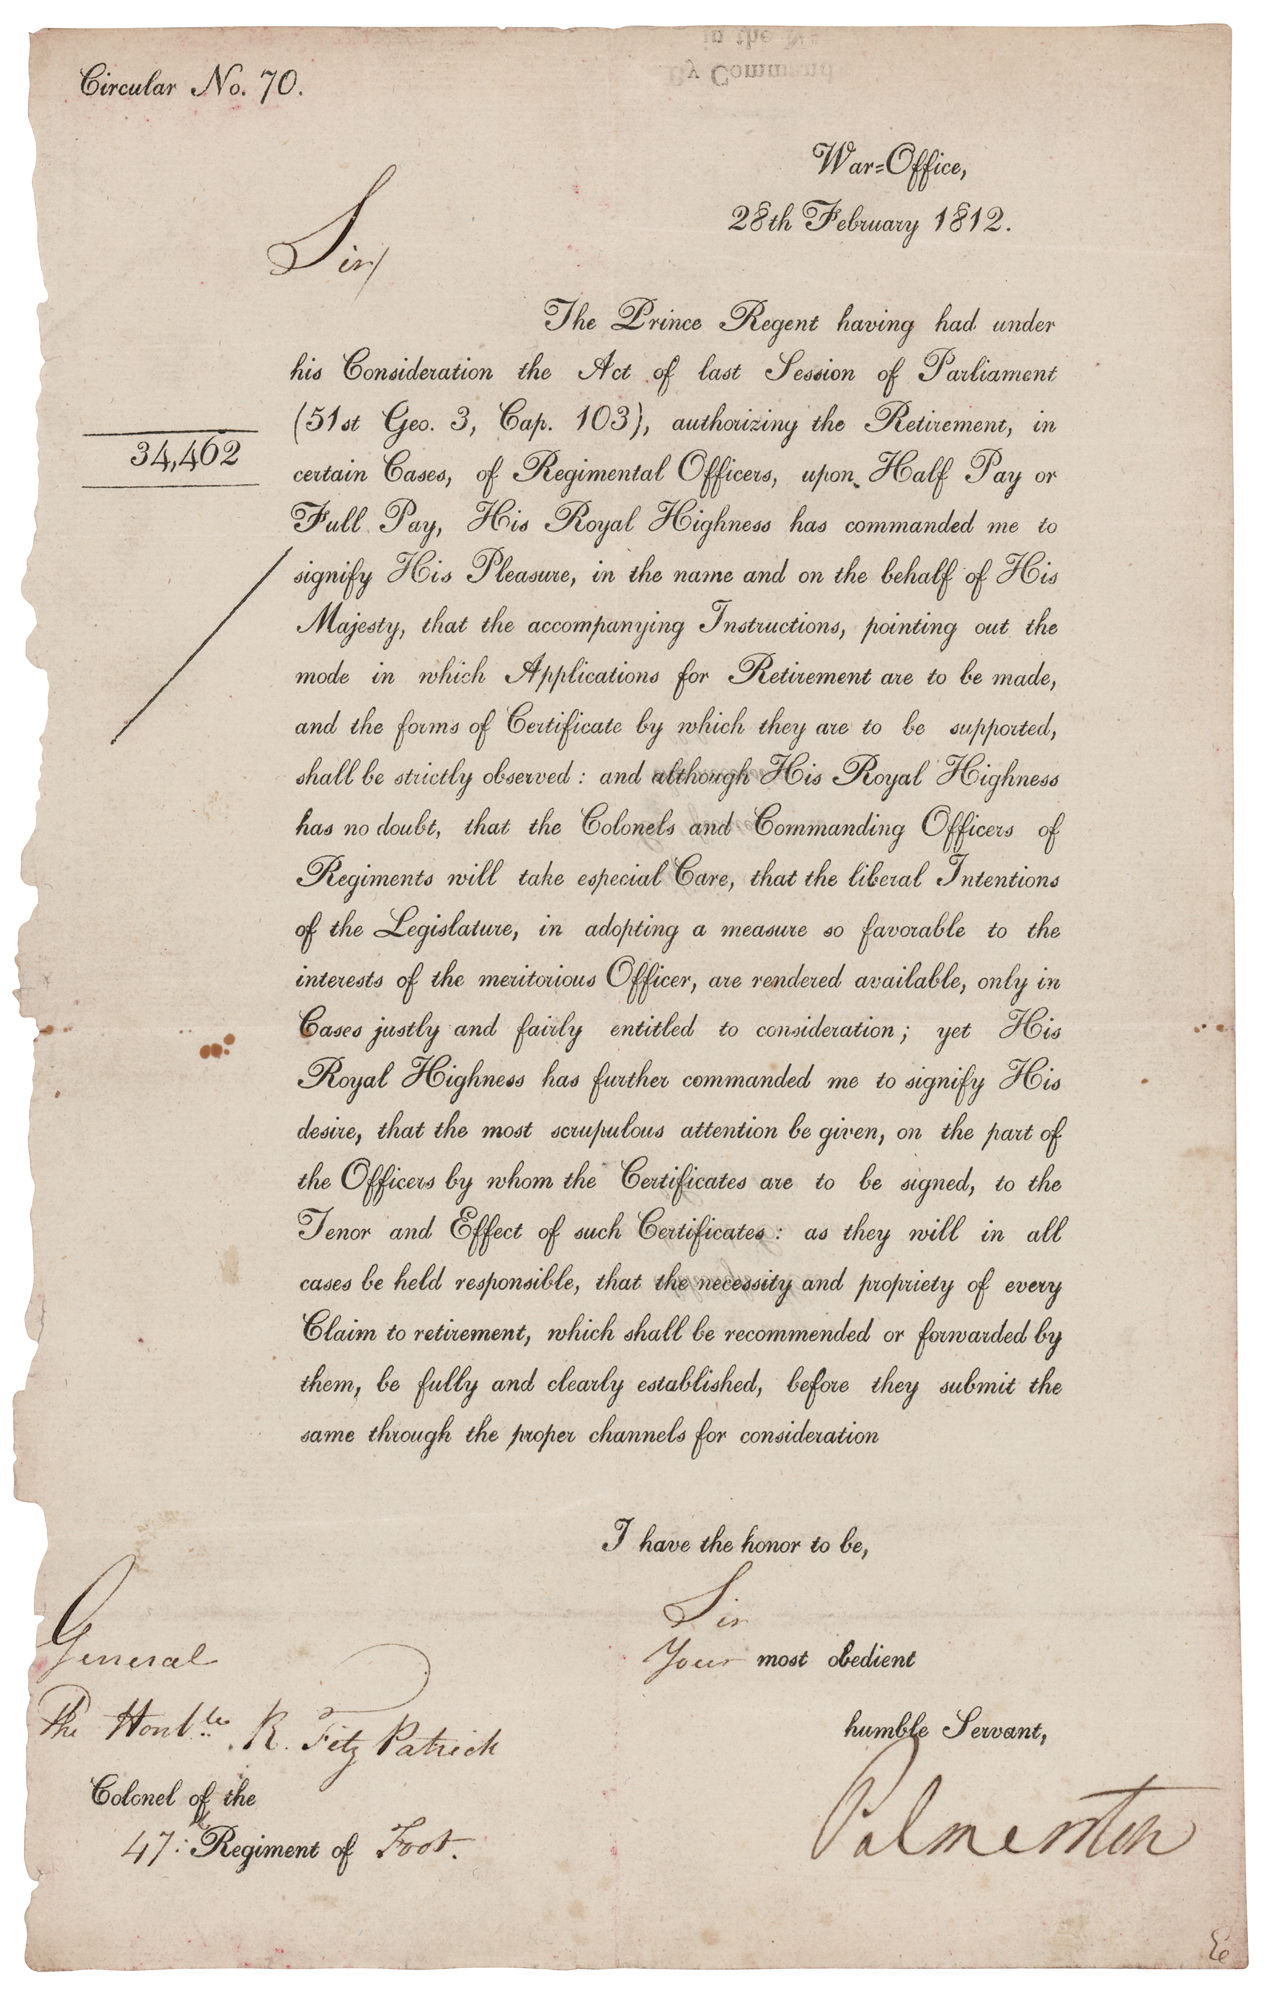 Circular No. 70.
War=Office,
28th February 1812.
Sir,
The Prince Regent having had under
his Consideration the Act of last Session of Parliament
(51st Geo. 3, Cap. 103), authorizing the Retirement, in
34,462
certain Cases, of Regimental Officers, upon Half Pay or
Full Pay, His Royal Highness has commanded me to
signify His Pleasure, in the name and on the behalf of His
Majesty, that the accompanying Instructions, pointing out the
mode in which Applications for Retirement are to be made,
and the forms of Certificate by which they are to be supported,
shall be strictly observed: and although His Royal Highness
has no doubt, that the Colonels and Commanding Officers of
Regiments will take especial Care, that the liberal Intentions
of the Legislature, in adopting a measure so favorable to the
interests of the meritorious Officer, are rendered available, only in
Cases justly and fairly entitled to consideration; yet His
Royal Highness has further commanded me to signify His
desire, that the most scrupulous attention be given, on the part of
the Officers by whom the Certificates are to be signed, to the
Tenor and Effect of such Certificates: as they will in all
cases be held responsible, that the necessity and propriety of every
Claim to retirement, which shall be recommended or forwarded by
them, be fully and clearly established, before they submit the
same through the proper channels for consideration
I have the honor to be,
Sir
Your most obedient
humble Servant,
Palmerston
General
The Honble. R. Fitz Patrick
Colonel of the
47: Regiment of Foot.